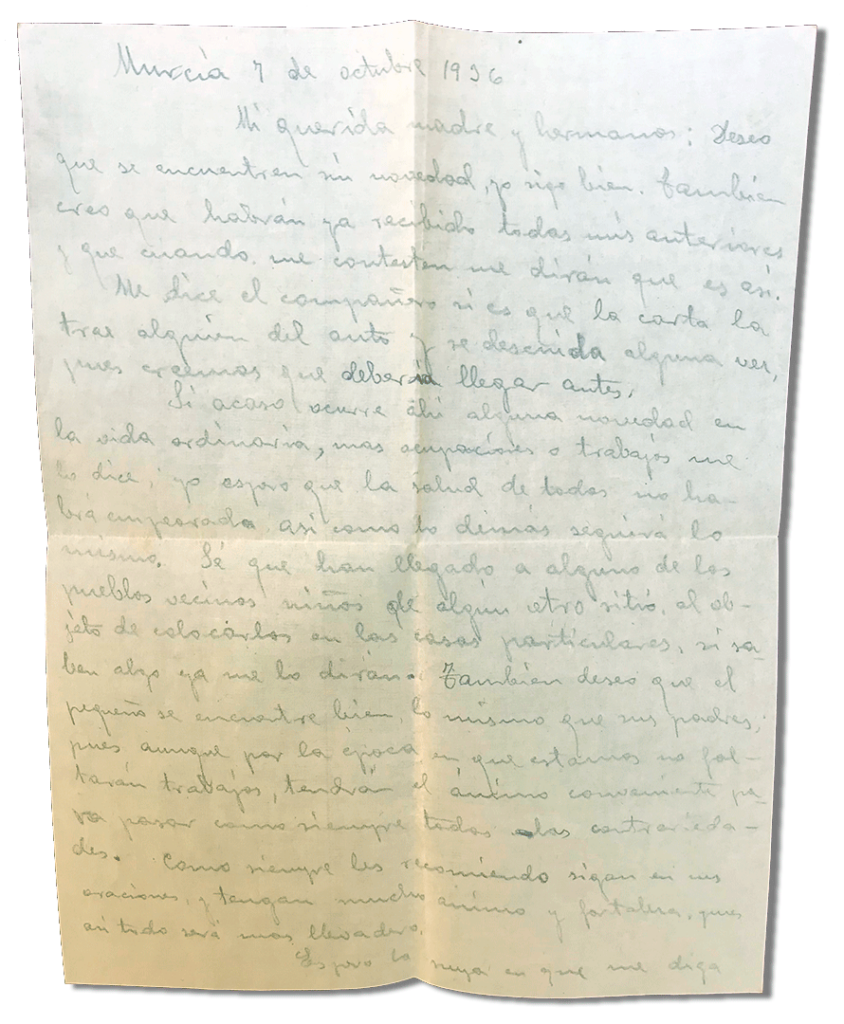 Murcia 7 de octubre 1936
Mi querida madre y hermanos: Deseo
que se encuentren sin novedad, yo sigo bien. También
creo que habrán ya recibido todas mis anteriores
y que cuando me contesten me dirán que es así.
Me dice el compañero si es que la carta la
trae alguien del auto y se descuida alguna vez,
pues creemos que debería llegar antes.
Si acaso ocurre ahí alguna novedad en
la vida ordinaria, mas ocupaciones o trabajos me
lo dice; yo espero que la salud de todos no ha-
brá empeorado así como lo demás seguirá lo
mismo. Sé que han llegado a alguno de los
pueblos vecinos niños de algún otro sitio, al ob-
jeto de colocarlos en las casas particulares, si sa-
ben algo ya me lo dirán. También deseo que el
pequeño se encuentre bien, lo mismo que sus padres,
pues aunque por la época en que estamos no fal-
tarán trabajos, tendrán el ánimo conveniente pa-
ra pasar como siempre todas las contrarieda-
des. Como siempre les recomiendo sigan en sus
oraciones, y tengan mucho ánimo y fortaleza, pues
así todo será mas llevadero.
Espero la suya en que me diga